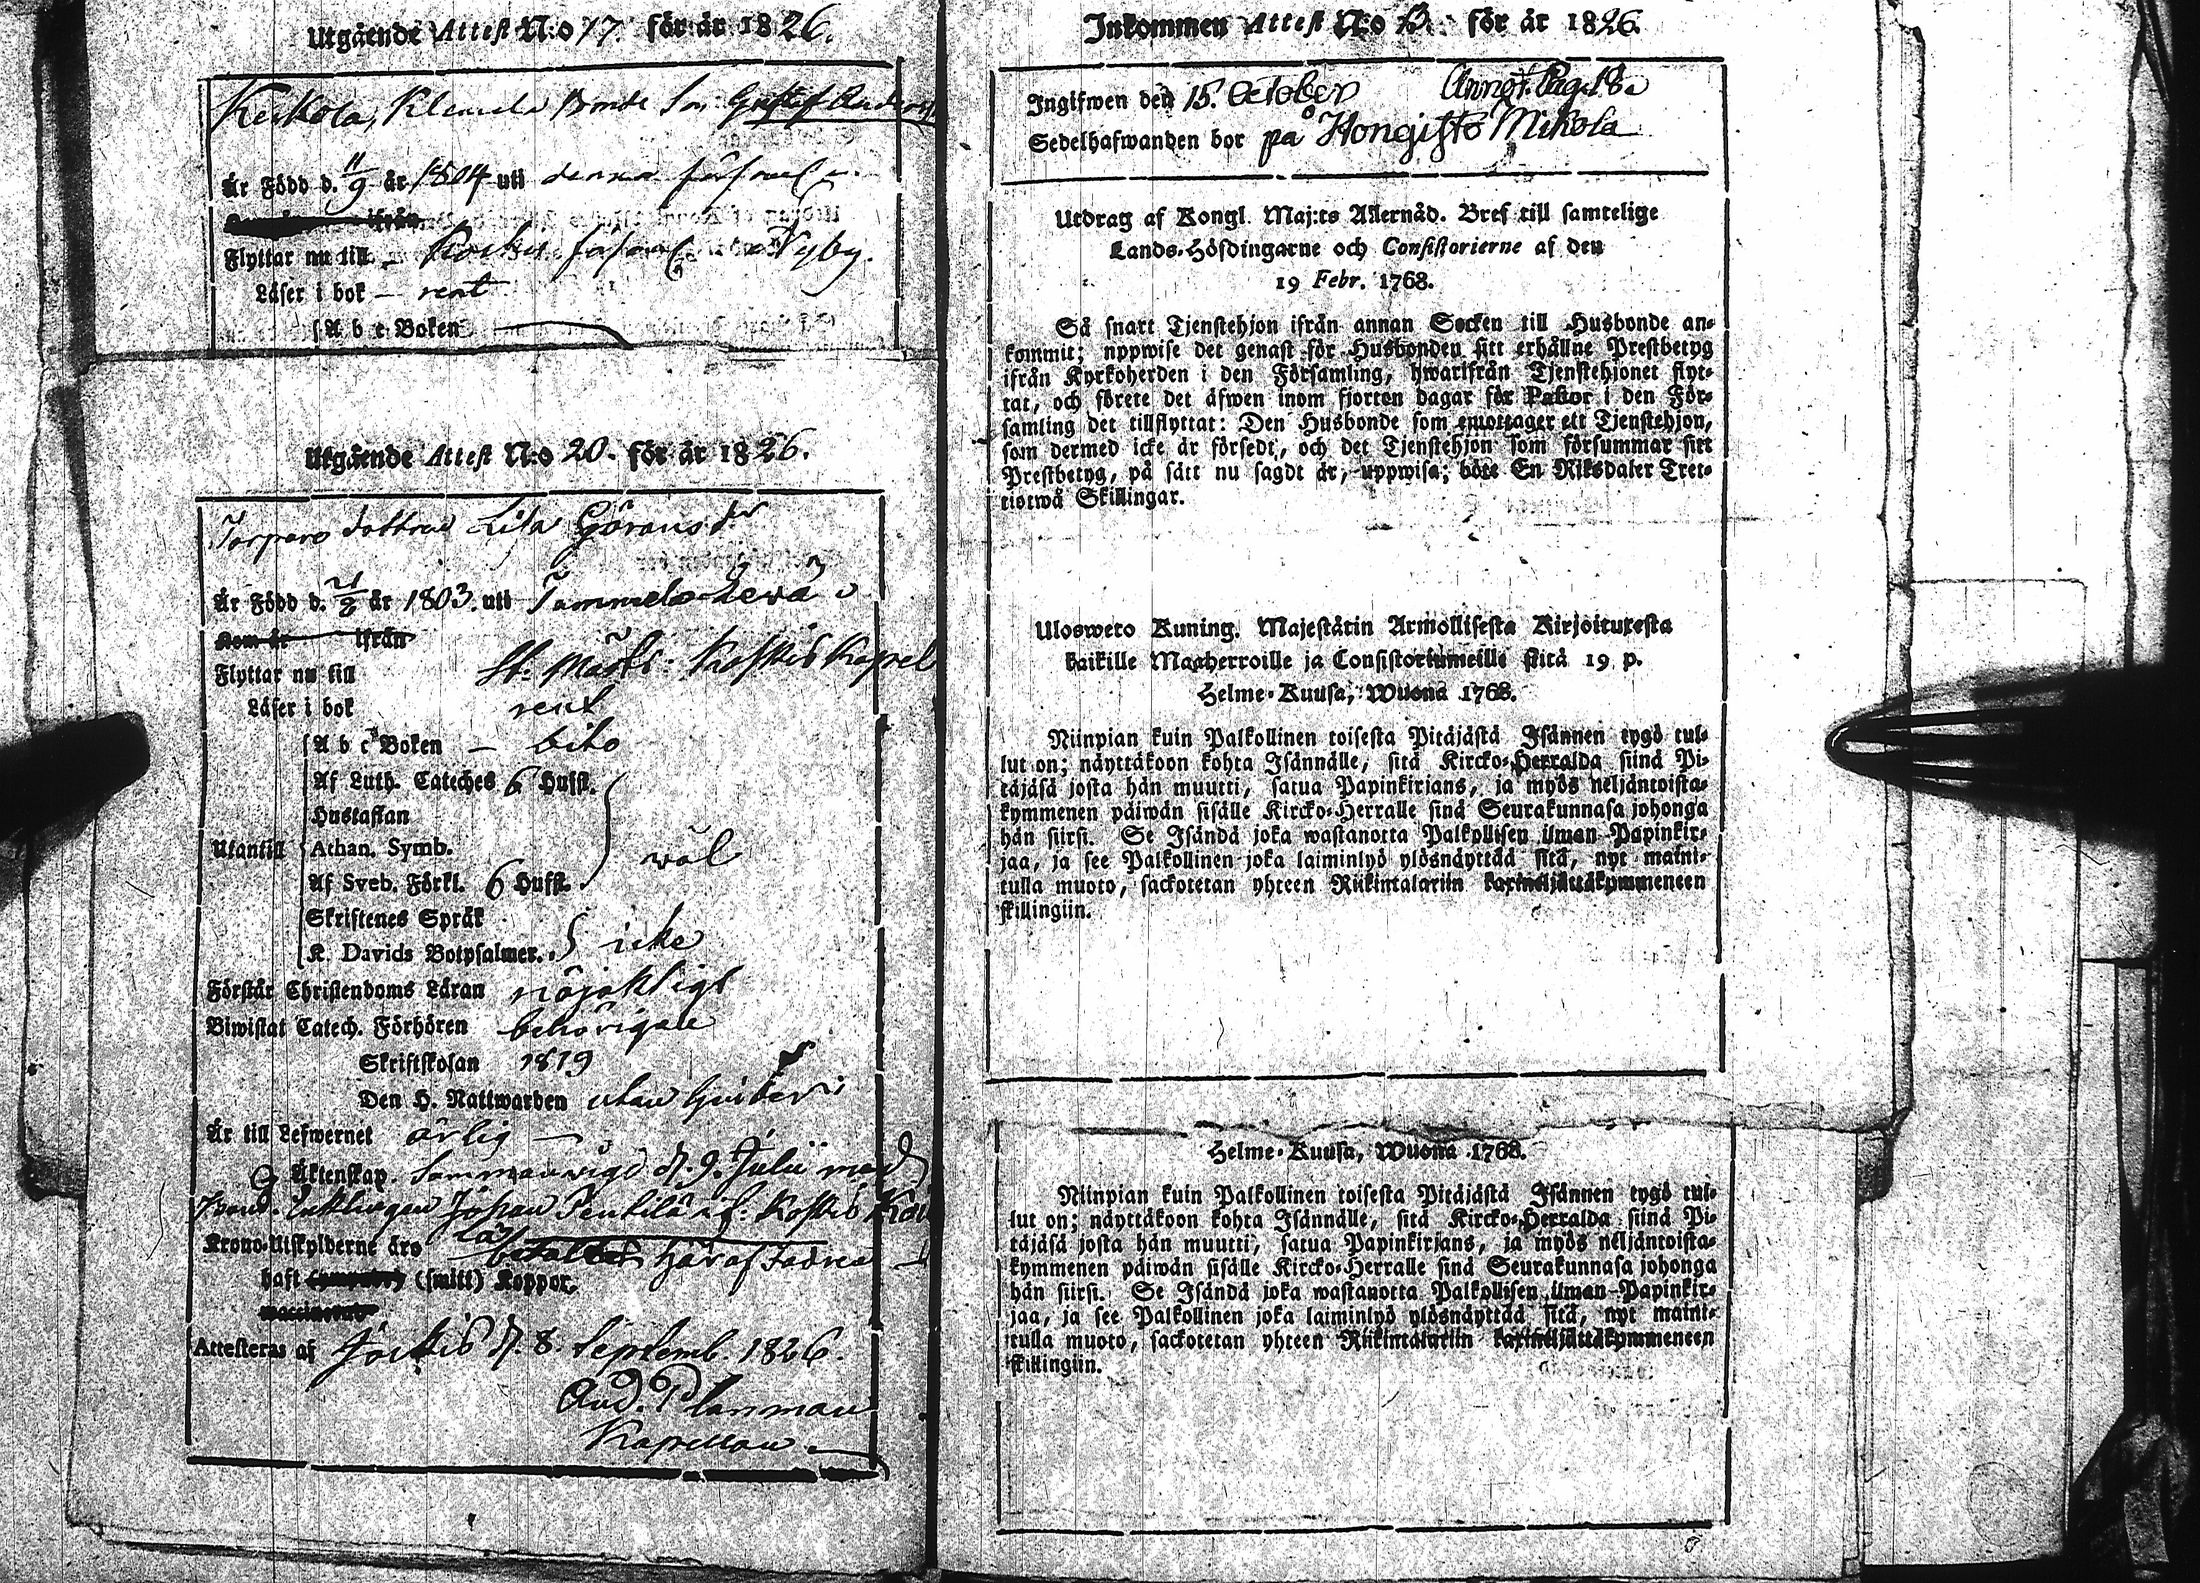 Utgående Attest N:o 17. för år 1826.
Keikola, Klemela Bonde Son Gustaf Anders
Är Född d. 11/9 år 1804 uti denna församl
ifrån
Flyttar nu till Koskis församl Nyby.
Läser i bok – rent
A b c Boken
Utgående Attest N:o 20. för år 1826.
Torpare dottren Lisa Göransdr
Är Född d. 21/2 år 1803. uti Tammela
Kom år ifrån
Flyttar nu till St. Mårts: Koskis Kapel
Läser i bok rent
A b c Boken – dito
Af Luth. Cateches 6 Hufst.
Hustaflan
Utantill Athan. Symb. wäl
Af Sveb. Förkl. 6 Hufst.
Skriftenes Språk
K. Davids Botpsalmer. icke
Förstår Christendoms Läran nöjaktigt
Biwistat Catech. Förhören behörigen
Skriftskolan 1819
Den H. Nattwarden utan hinder
Är till Lefwernet ärlig –
Äktenskap. Sammanvigd d. 9. Julii med
Johan Penttilä Koskis
Krono-Utskylderne äro betalta
haft (smitt) Koppor.
Attesteras af Jockis d. 8. Septemb. 1826.
And. Planman
Kapellan
Inkommen Attest N:o 13. för år 1826.
Ingifwen den 15. October Annot. Pag. 18
Sedelhafwanden bor på Hongisto Mikola
Utdrag af Kongl. Maj:ts Allernåd. Bref till samtelige
Lands-Höfdingarne och Consistorierne af den
19 Febr. 1768.
Så snart Tjenstehjon ifrån annan Socken till Husbonde an-
kommit; uppwise det genast för Husbonden sitt erhållne Prestbetyg
ifrån Kyrkoherden i den Församling, hwarifrån Tjenstehjonet flyt-
tat, och förete det äfwen inom fjorton dagar för Pastor i den För-
samling det tillflyttat: Den Husbonde som emottager ett Tjenstehjon,
som dermed icke är försedt, och det Tjenstehjon som försummar sitt
Prestbetyg, på sätt nu sagdt är, uppwisa; böte En Riksdaler Tret-
tiotwå Skillingar.
Ulosweto Kuning. Majestätin Armollisesta Kirjoituxesta
kaikille Maaherroille ja Consistoriumeille siitä 19 p.
Helme-Kuusa, Wuona 1768.
Niinpian kuin Palkollinen toisesta Pitäjästä Isännen tygö tul-
lut on; näyttäkoon kohta Isännälle, sitä Kircko-Herralda siinä Pi-
täjäsä josta hän muutti, satua Papinkirjans, ja myös neljäntoista-
kymmenen päiwän sisälle Kircko-Herralle sinä Seurakunnasa johonga
hän siirsi. Se Isändä joka wastanotta Palkollisen ilman Papinkir-
jaa, ja see Palkollinen joka laiminlyö ylösnäyttää sitä, nyt maini-
tulla muoto, sackotetan yhteen Riikintalariin kaxineljättäkymmeneen
skillingiin.
Helme-Kuusa, Wuona 1768.
Niinpian kuin Palkollinen toisesta Pitäjästä Isännen tygö tul-
lut on; näyttäkoon kohta Isännälle, sitä Kircko-Herralda siinä Pi-
täjäsä josta hän muutti, satua Papinkirjans, ja myös neljäntoista-
kymmenen päiwän sisälle Kircko-Herralle sinä Seurakunnasa johonga
hän siirsi. Se Isändä joka wastanotta Palkollisen ilman Papinkir-
jaa, ja see Palkollinen joka laiminlyö ylösnäyttää sitä, nyt maini-
tulla muoto, sackotetan yhteen Riikintalariin kaxineljättäkymmeneen
skillingiin.